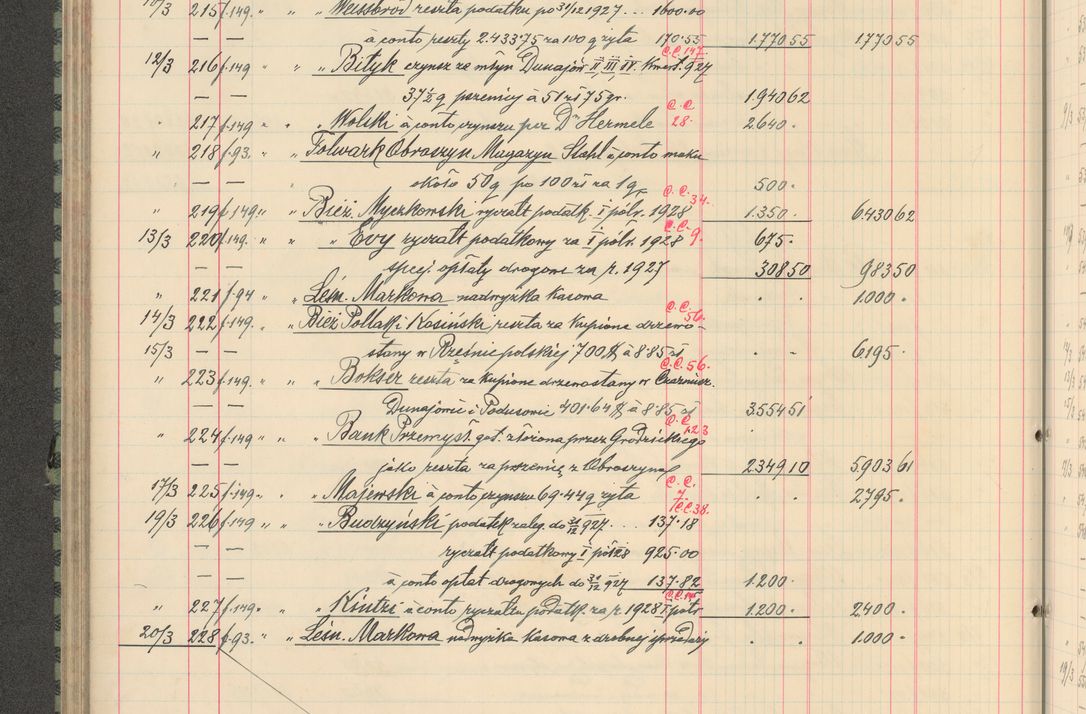 10/3 215 f.149. " " " Weissbrod reszta podatku po 31/12 1927 ... 1600.00
— — à conto reszty 2.433.75 za 100 q żyta 170.55 1.770 55 1770 55
C.C. 147.
12/3 216 f.149 " " " Bityk czynsz ze młyn Dunajów II III IV. kwart. 927
— — 37 1/2 q pszenicy à 51 zł 75 gr. 1.940 62
C.C. 28.
" 217 f.149 " " " Wolski à conto czynszu per Dr Hermele 2.640.
" 218 f.93. " " Folwark Obroszyn Magazyn Stahl à conto maku
— — około 50 q po 100 zł za 1 q 500.
C.C. 34.
" 219 f.149. " " " Bież. Myczkowski ryczałt podatk. I półr. 1928 1.350. 6.430 62
C.C. 9.
13/3 220 f.149. " " " Evy ryczałt podatkowy za I półr. 1928 675.
— — spcj. opłaty drogowe za r. 1927 308 50 983 50
" 221 f.94 " Leśn. Markowa nadwyżka kasowa . . 1.000.
C.C. 56.
14/3 222 f.149. " Bież Pollak i Kosiński reszta za kupione drzewo-
15/3 — — stany w Rzęśnie polskiej 700 à 8.85 zł . . 6195.
C.C. 56.
" 223 f.149. " " " Bokser reszta za kupione drzewostany w
— — Dunajowie i Podusowie 401.64 à 8.85 zł 3.554 51
C.C. 123
" 224 f.149 " " " Bank Przemysł. got. złożona przez Grodzickiego
— — jako reszta za pszenicę z Obroszyna 2349 10 5.903 61
C.C. 7.
17/3 225 f.149. " " Majewski à conto czynszu 69.44 q żyta . . 2795.
C.C. 38.
19/3 226 f.149 " " " Budzyński podatek zaleg. do 31/12 927. ... 137.18
— — ryczałt podatkowy I pół 28 925.00
— — à conto opłat drogowych do 31/12 927 137.82 1.200.
" 227 f.149. " " " Kintzi à conto ryczałtu podatk. za r. 1928 I półr 1.200. 2400.
20/3 228 f.93. " " Leśn. Markowa nadwyżka kasowa z drobnej sprzedaży . . 1.000.